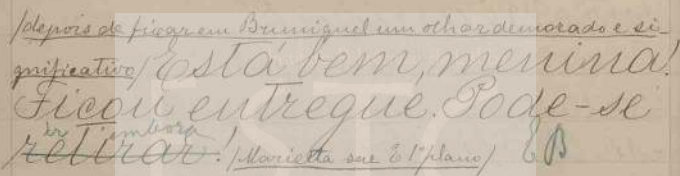 /depois de fixar em Bruniquel um olhar demorado e si-
gnificativo/ Está bem, menina!
Ficou entregue. Pode-se
ir embora
retirar! /Marietta sae E 1º plano/ E B